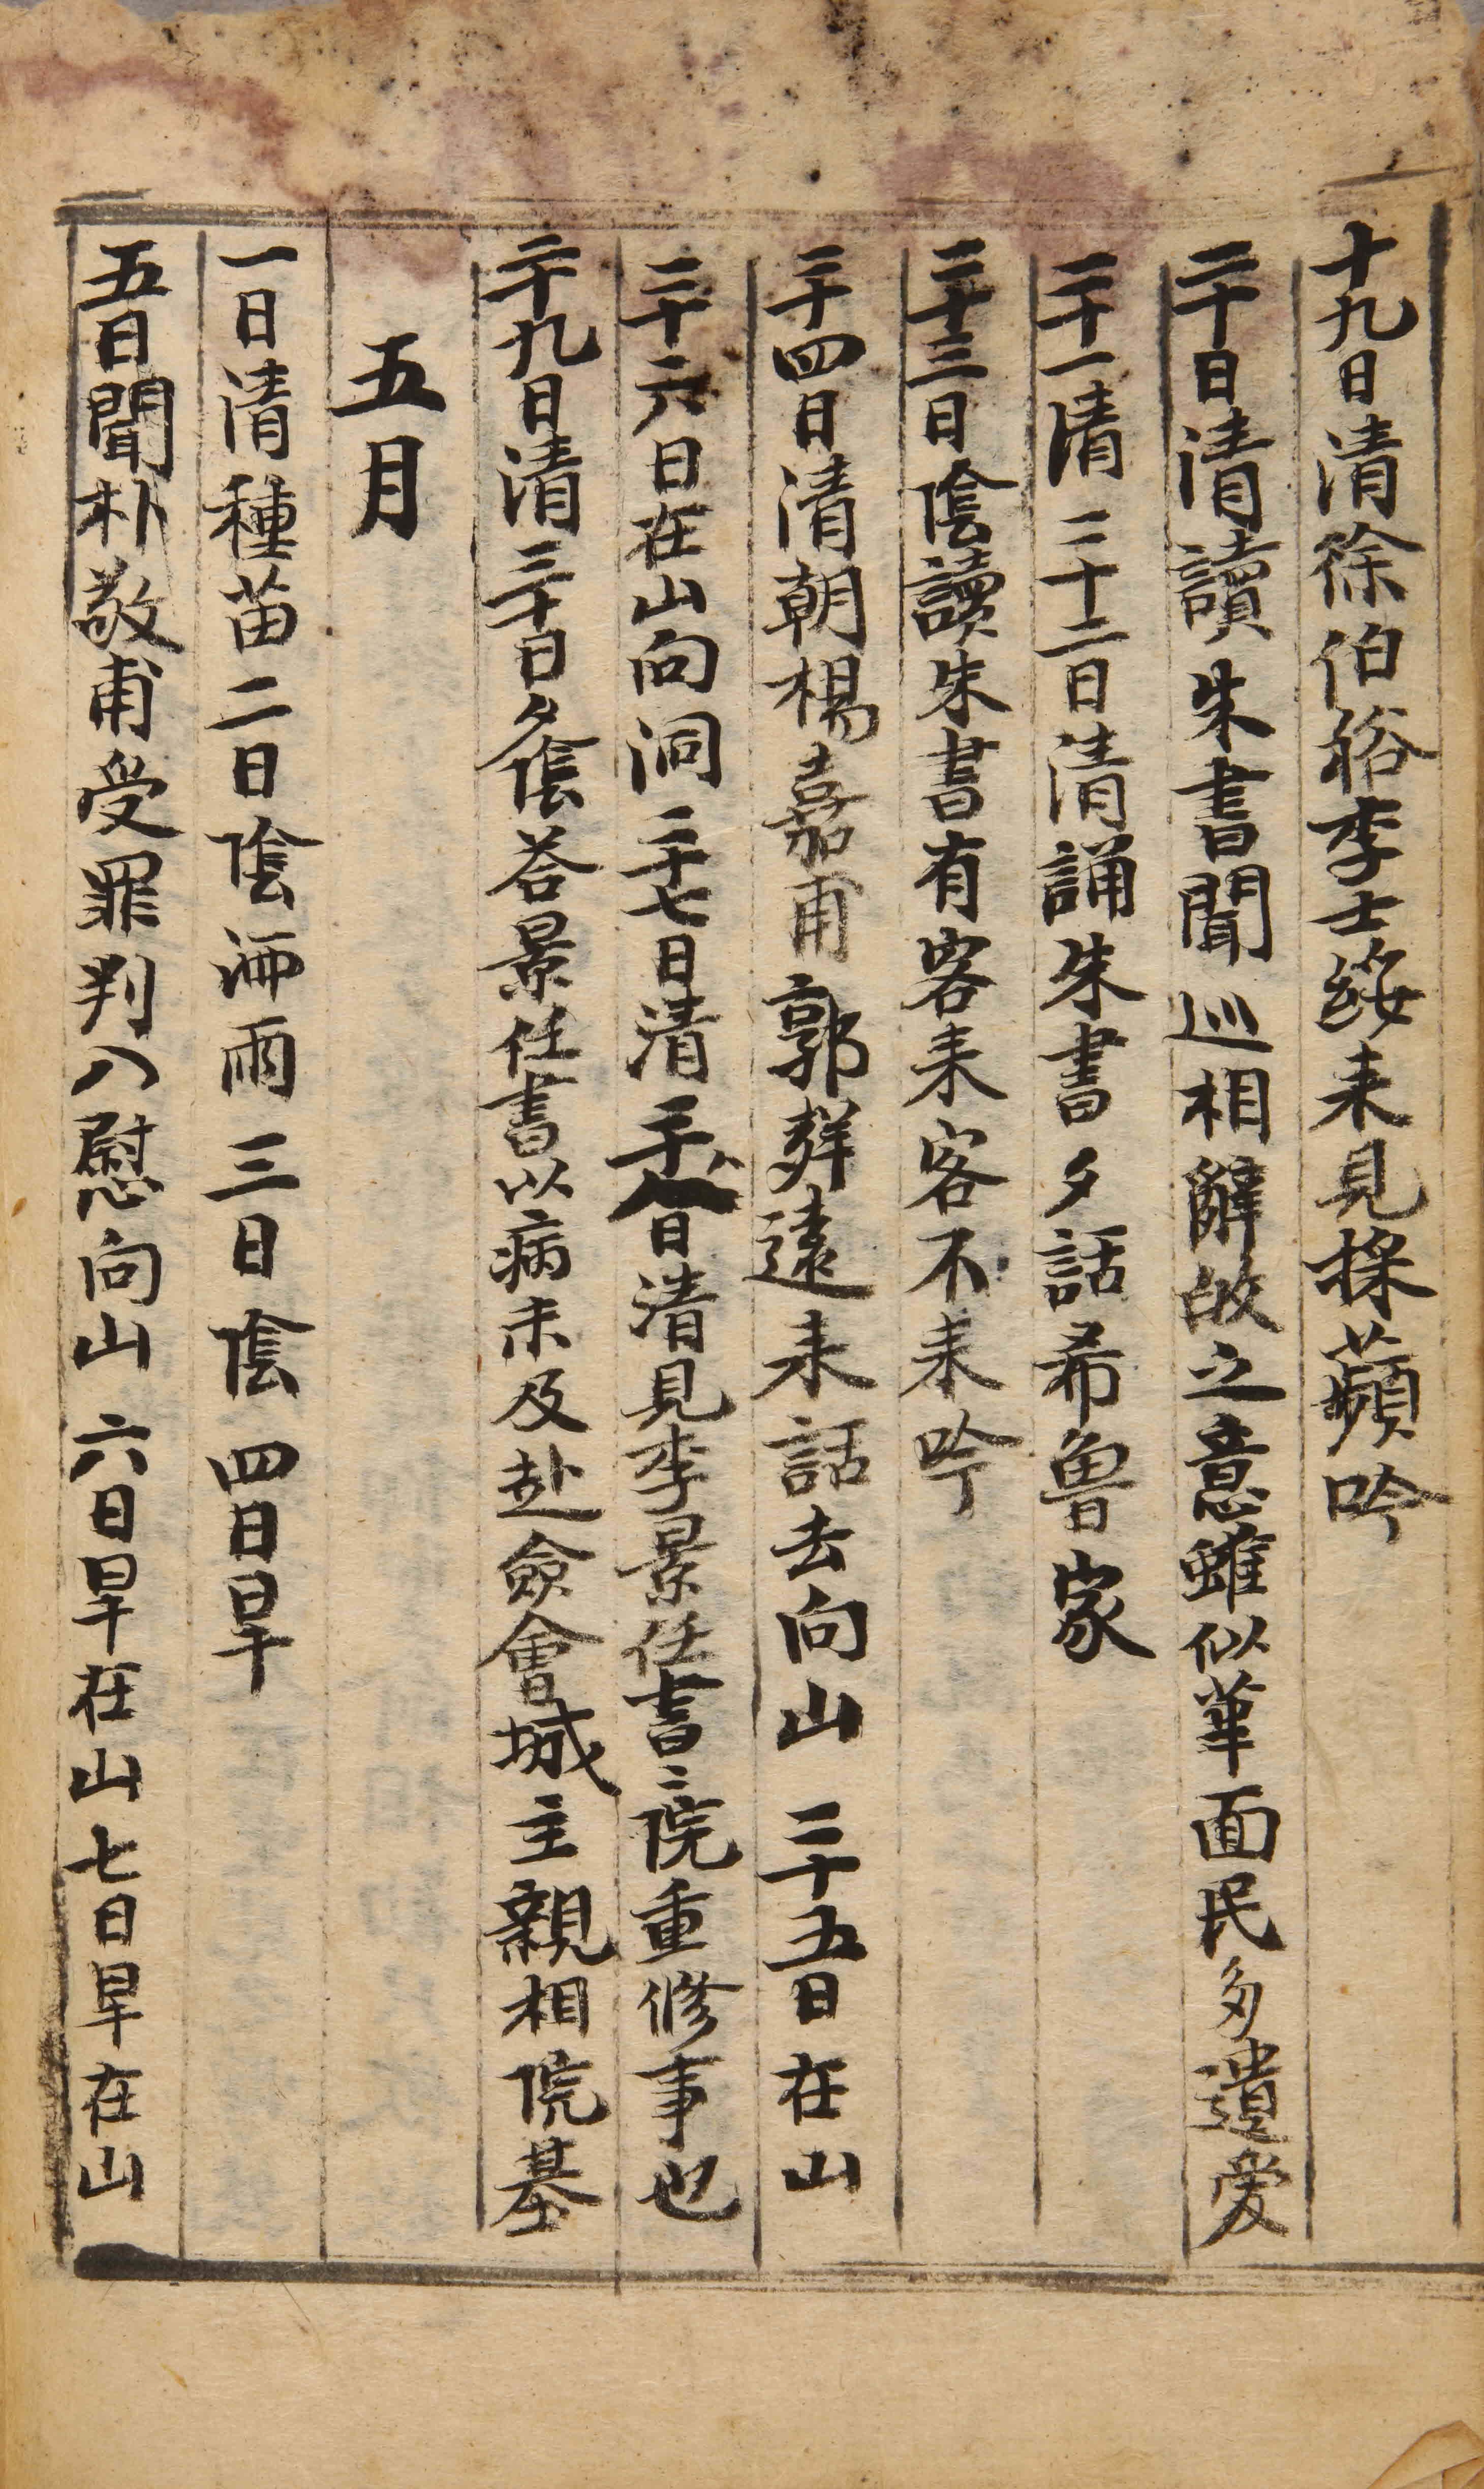 十九日清徐伯裕李士綏来見採蘋吟
二十日清讀朱書聞巡相解攽之意雖似革面民多遺愛
二十一清二十二日清誦朱書夕話希魯家
二十三日陰讀朱書有客来客不来吟
二十四日清朝楊嘉甫郭群遠来話去向山二十五日在山
二十六日在山向洞二十七日清二十八日清見李景任書〻院重修事也
二十九日清三十日夕陰答景任書以病未及赴僉會城主親相院基
五月
一日清種苗二日陰洒雨三日陰四日旱
五日聞朴敬甫受罪判入慰向山六日旱在山七日旱在山